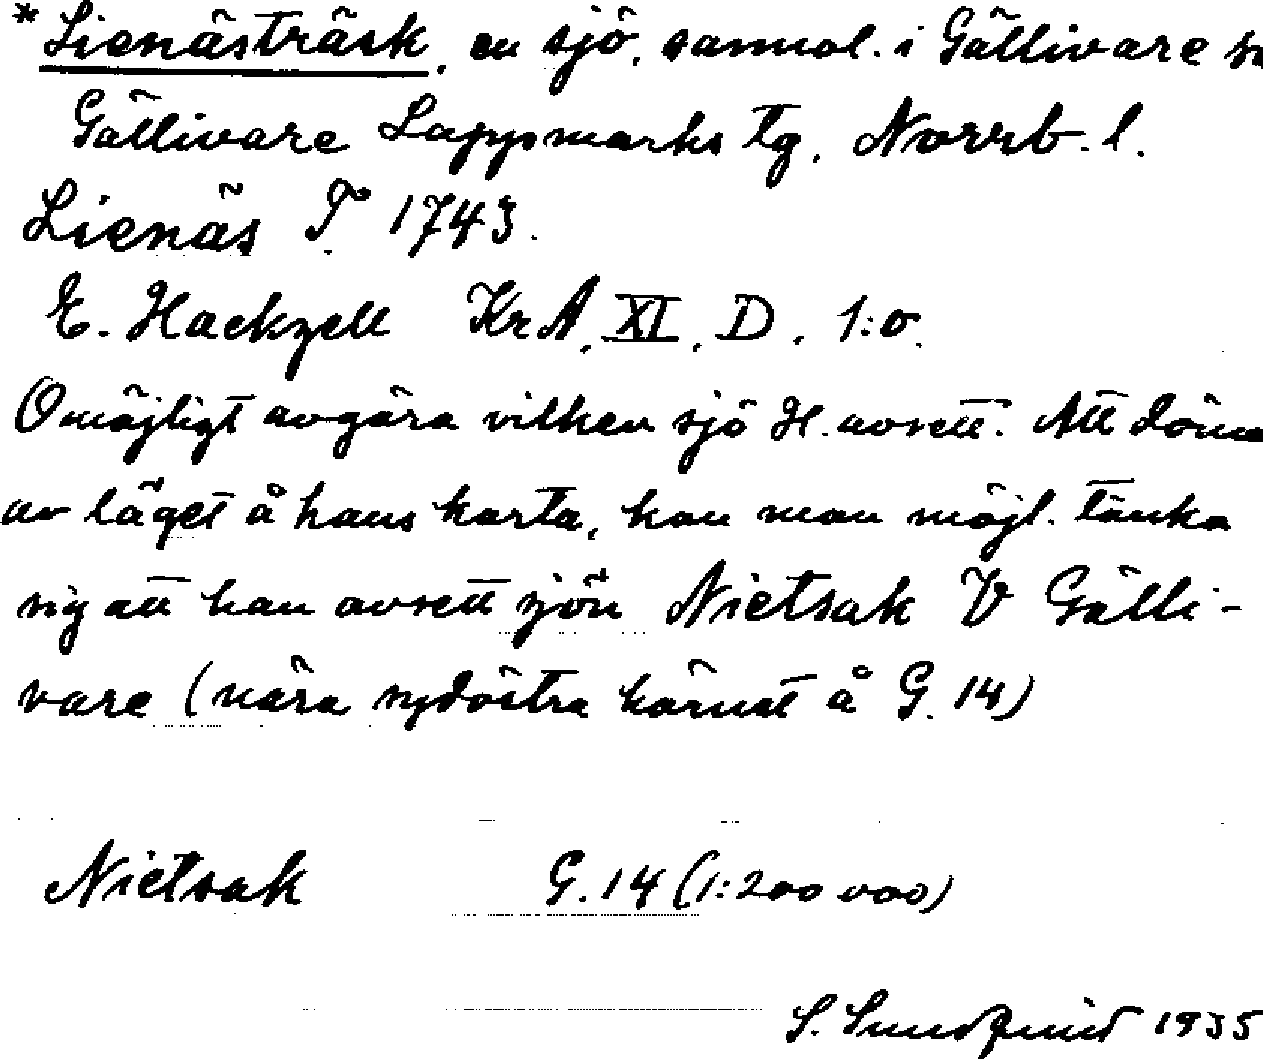 *Lienästräsk, en sjö, sannol. i Gällivare sn
Gällivare Lappmarks tg, Norrb. l.
Lienäs T. 1743.
E. Hackzell KrA, XI, D, 1:o.
Omöjligt avgöra vilken sjö H. avsett. Att döma
av läget å hans karta, kan man möjl. tänka
sig att han avsett sjön Nietsak V Gälli-
vare (nära sydöstra hörnet å G. 14)
Nietsak G. 14 (1:200 000)
S. Sundqvist 1935